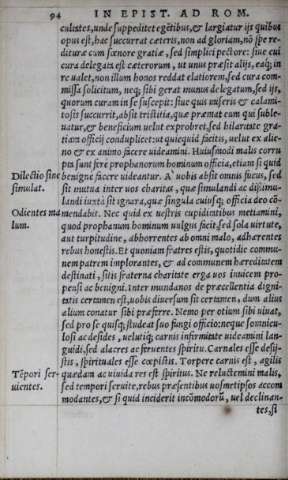 94 IN EPIST. AD ROM.
culentes, unde suppeditet egētibus, & largiatur ijs quibus
opus est, hac succurrat cæteris, non ad gloriam, nō spe re-
dituræ cum fœnore gratiæ, sed simplici pectore: siue cui
cura delegata est cæterorum, ut unus præsit alijs, eaq; in
re ualet, non illum honos reddat elatiorem, sed cura com-
missa solicitum, neq; sibi gerat munus delegatum, sed ijs,
quorum curam in se suscepit: siue quis miseris & calami-
tosis succurrit, absit tristitia, quæ præmat eum qui suble-
uatur, & beneficium uelut exprobret, sed hilaritate gra-
tiam officij conduplicet: ut quicquid facitis, uelut ex alie-
no & ex animo facere uideamini. Huiusmodi malis corru
pta sunt fere prophanorum hominum officia, etiam si quid
Dilectio sine benigne facere uideantur. A' uobis absit omnis fucus, sed
simulat. sit mutua inter uos charitas, quæ simulandi ac dissimu-
landi iuxtà sit ignara, quæ singula cuiusq; officia deo cō-
Odientes ma mendabit. Nec quid ex uestris cupidinibus metiamini,
lum. quod prophanum hominum uulgus facit, sed sola uirtute,
aut turpitudine, abhorrentes ab omni malo, adhærentes
rebus honestis. Et quoniam fratres estis, quotidie commu-
nem patrem implorantes, & ad communem hæreditatem
destinati, sitis fraterna charitate erga uos inuicem pro-
pensi ac benigni. Inter mundanos de præcellentia digni-
tatis certamen est, uobis diuersum sit certamen, dum alius
alium conatur sibi præferre. Nemo per otium sibi uiuat,
sed pro se quisq; studeat suo fungi officio: neque somnicu-
losi ac desides, uelutiq; carnis infirmitate uideamini lan-
guidi, sed alacres ac feruentes spiritu. Carnales esse desij-
stis, spirituales esse cœpistis. Torpere carnis est, agilis
Tēpori ser- quædam ac uiuida res est spiritus. Ne reluctemini malis,
uientes. sed tempori seruite, rebus præsentibus uosmetipsos accom
modantes, & si quid inciderit incōmodorū, uel declinan-
tes, si